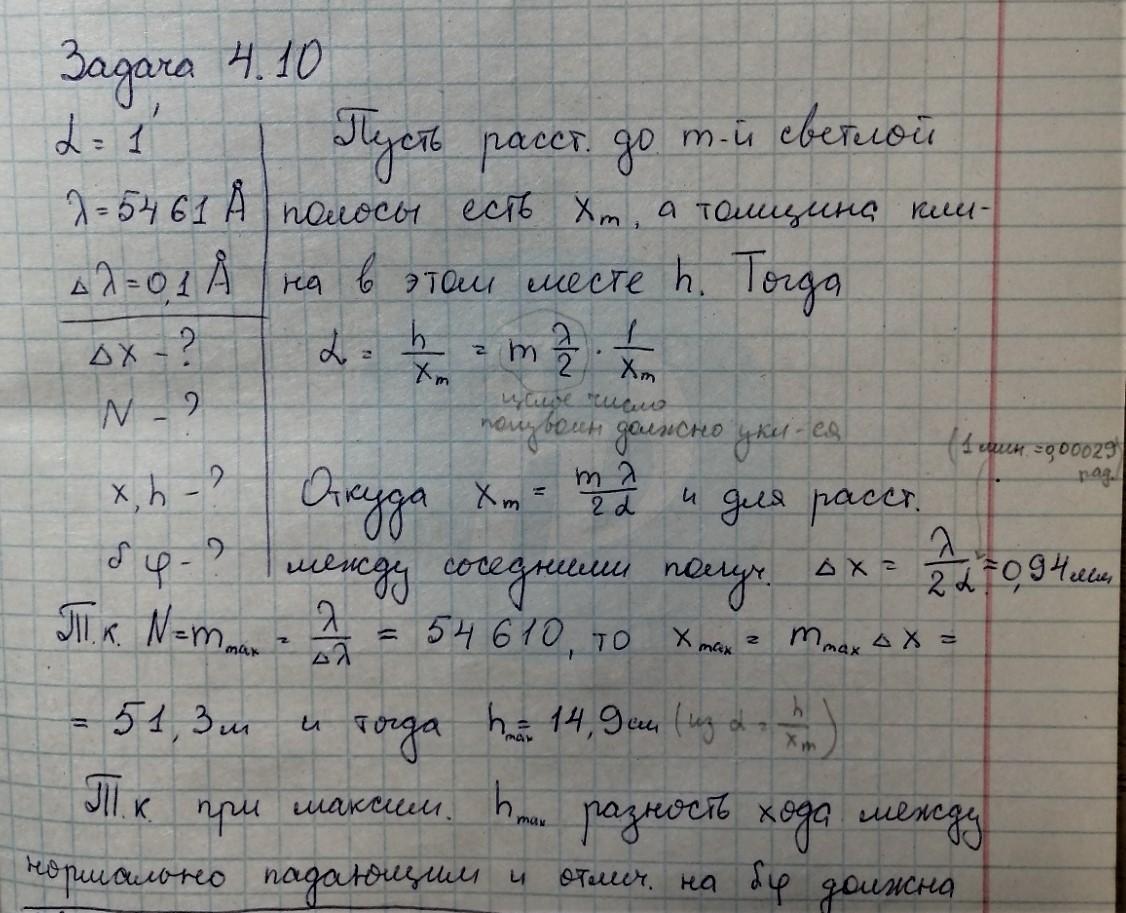 Задача 4.10
α = 1′
Пусть расст. до m-й светлой
λ = 5461 Å
полосы есть xₘ, а толщина кли-
Δλ = 0,1 Å
на в этом месте h. Тогда
Δx - ?
α = h/xₘ = m λ/2 · 1/xₘ
N - ?
целое число
полуволн должно укл-ся
(1 мин. = 0,00029
рад.
x, h - ?
Откуда xₘ = mλ/2α и для расст.
δφ - ?
между соседними получ. Δx = λ/2α = 0,94 мм
Т.к. N = mₘₐₓ = λ/Δλ = 54610, то xₘₐₓ = mₘₐₓ Δx =
= 51,3 м и тогда hₘₐₓ = 14,9 см (из α = h/xₘ)
Т.к. при максим. hₘₐₓ разность хода между
нормально падающим и отлич. на δφ должна